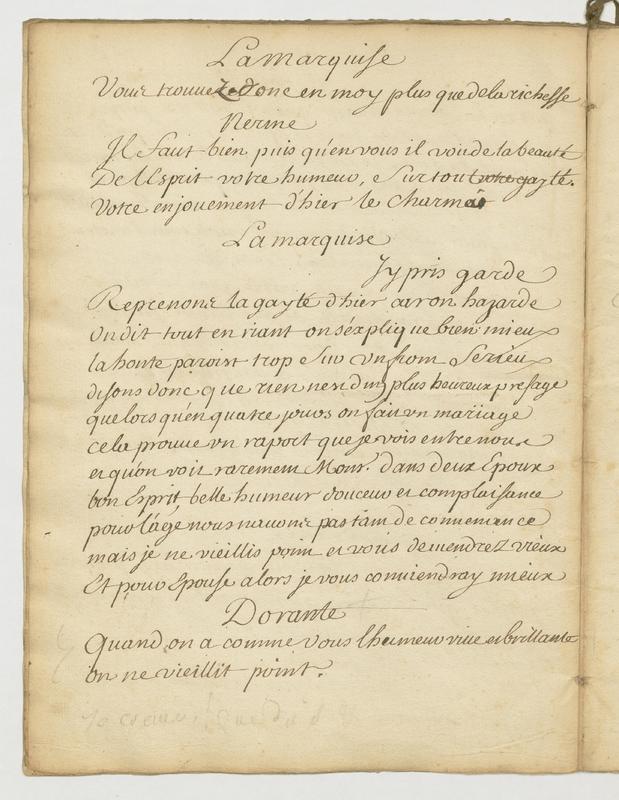 La marquise
Vous trouvez donc en moy plus que de la richesse
Nerine
Il faut bien puis qu'en vous il voit de la beauté
De l'Esprit votre humeur, e Surtout votre gayté.
Votre enjouement d'hier le charma
La marquise
J'y pris garde
Reprenons la gayté d'hier car on hazarde
On dit tout en riant on s'explique bien mieux
la honte paroist trop Sur un front Serieux
disons donc que rien n'est d'un plus heureux presage
que lors qu'en quatre jours on fait un mariage
cela prouve un raport que je vois entre nous
et qu'on voit rarement Monsr. dans deux Epoux
bon Esprit belle humeur douceur et complaisance
pour l'âge nous n'avons pas tant de convenance
mais je ne vieillis point et vous deviendrez vieux
Et pour Epouse alors je vous conviendray mieux
Dorante
Quand on a comme vous l'humeur vive et brillante
on ne vieillit point.